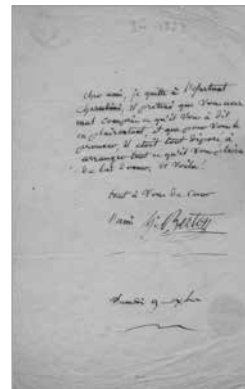 cher ami, je quitte à l'instant
Cherubini, il prétend que vous avez
mal compris ce qu'il vous a dit
en plaisantant, et que pour vous le
prouver, il était tout disposé à
arranger tout ce qu'il vous plaira
de lui donner, et voilà!
tout à vous de cœur
l'ami H. Berton